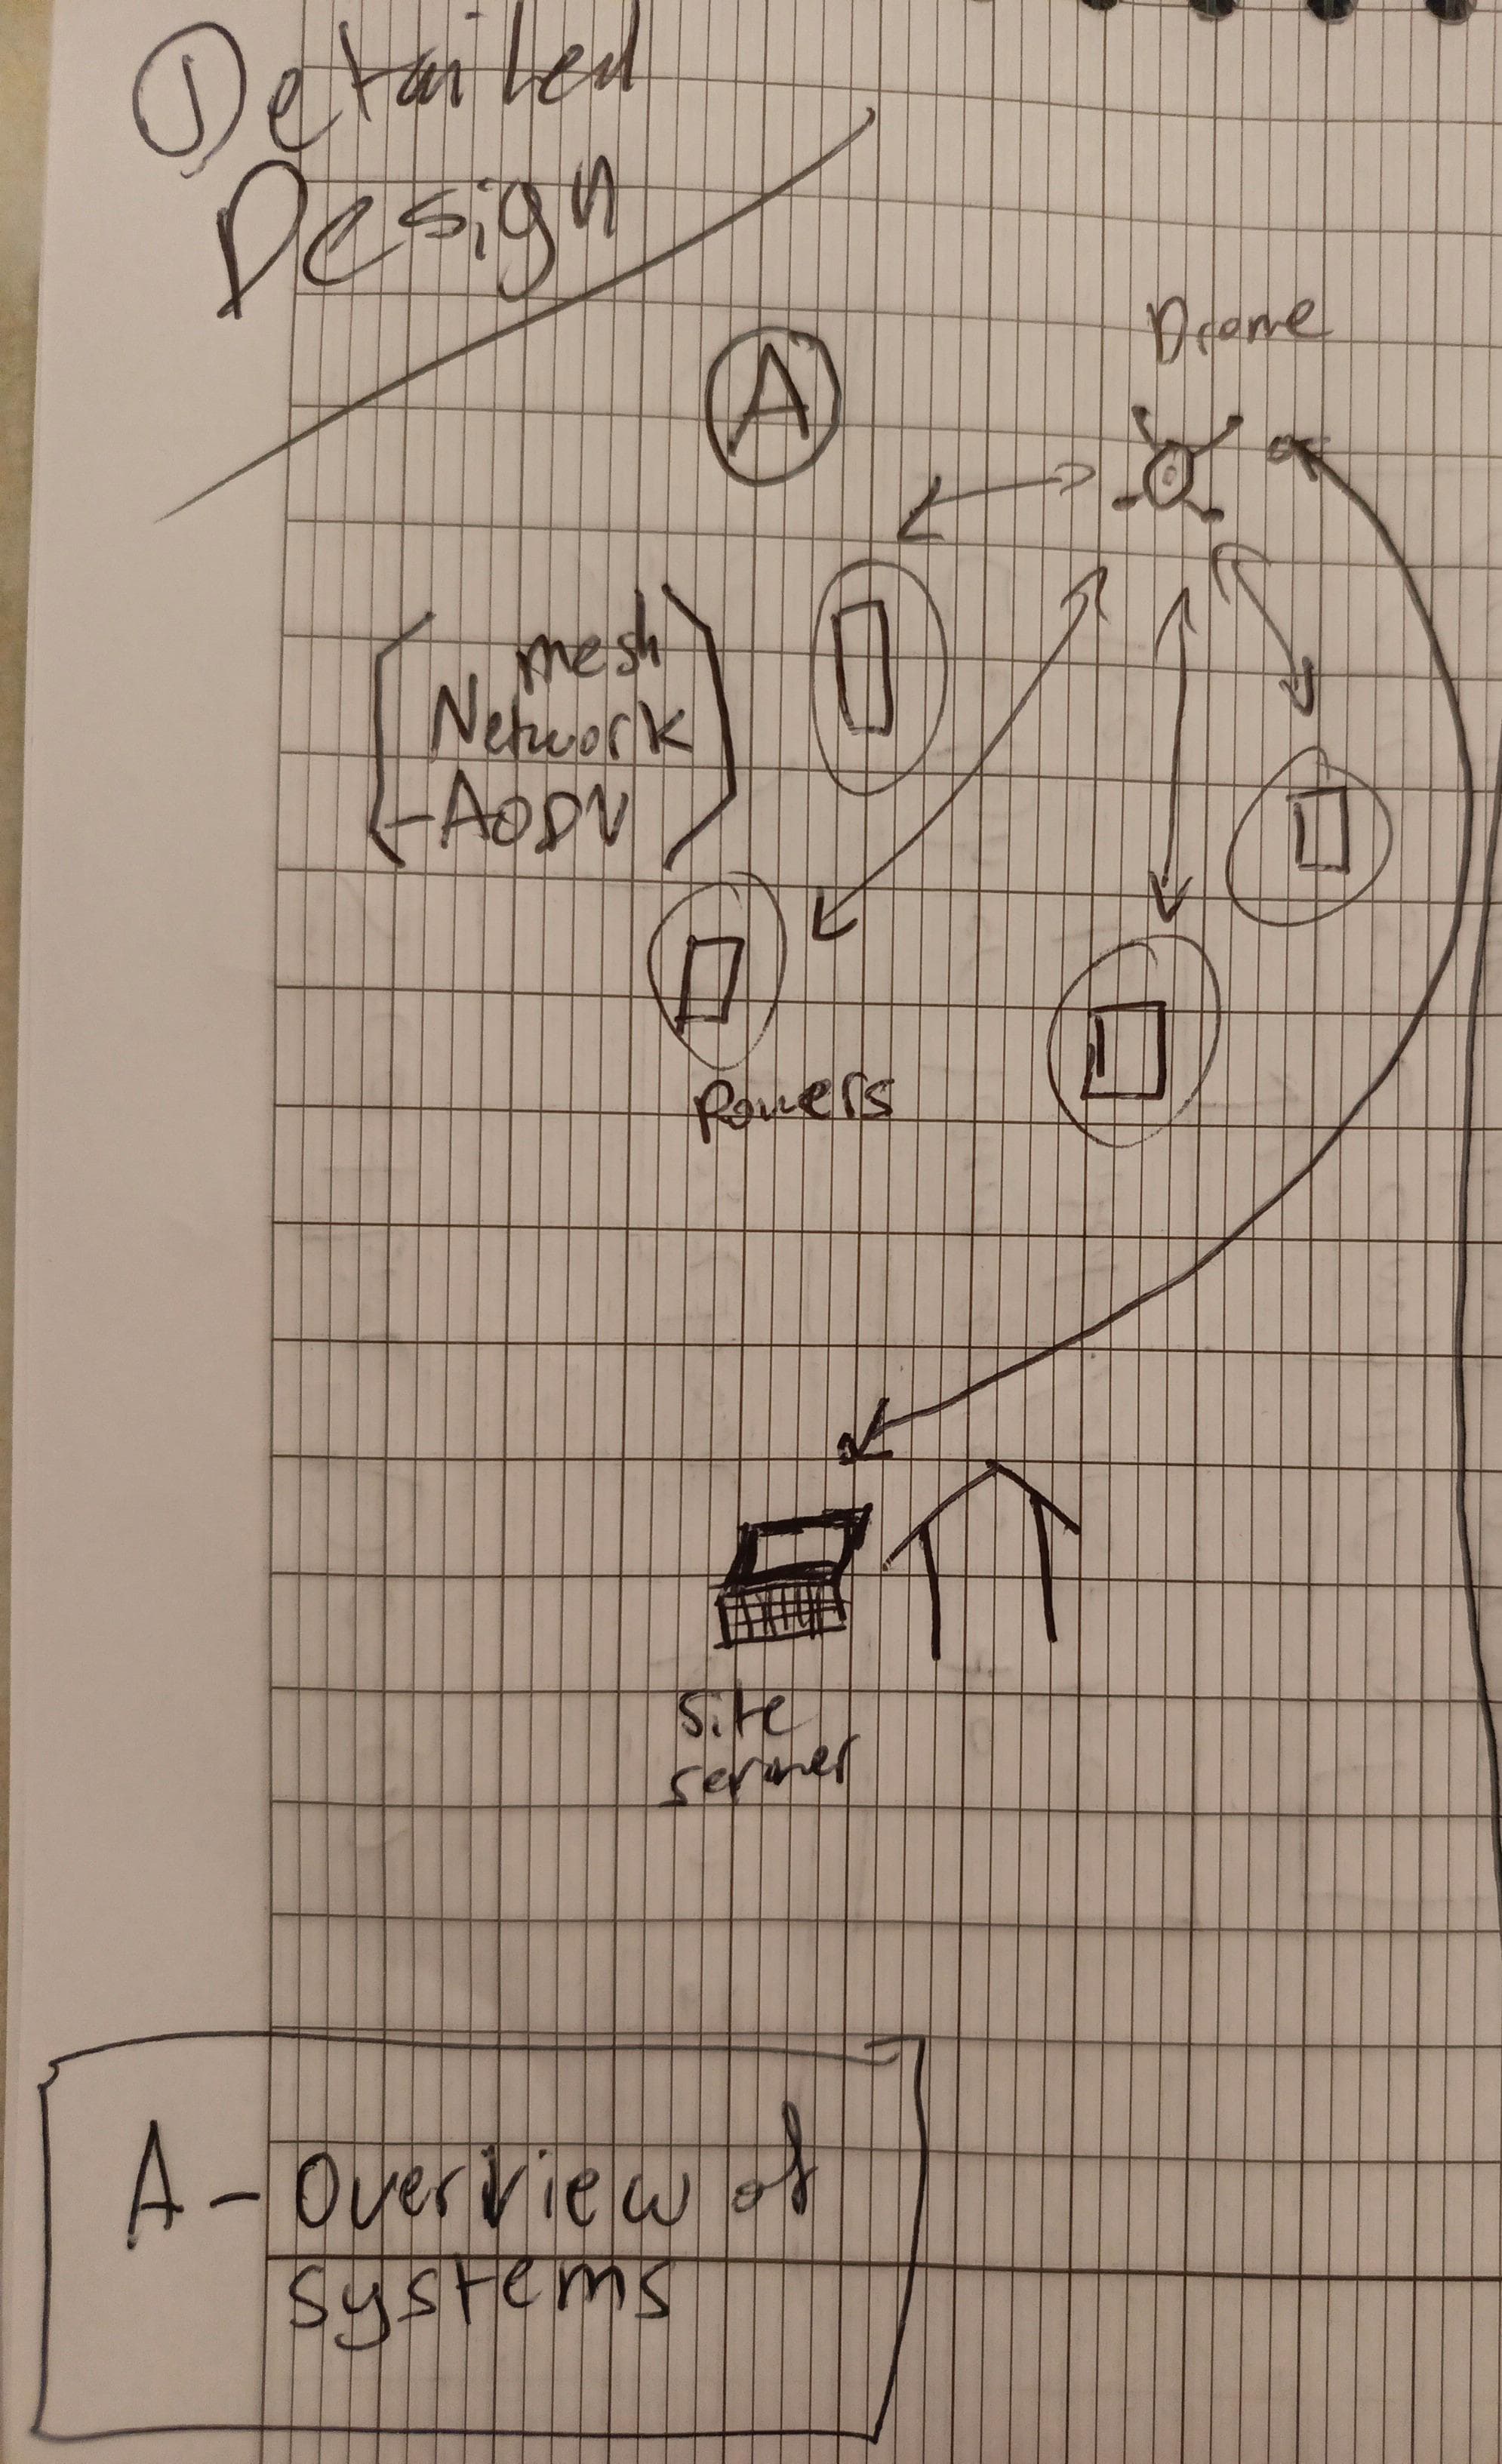 ① Detailed
Design
A
Drone
mesh
Network
- AODV
Rovers
Site
server
A - Overview of
systems